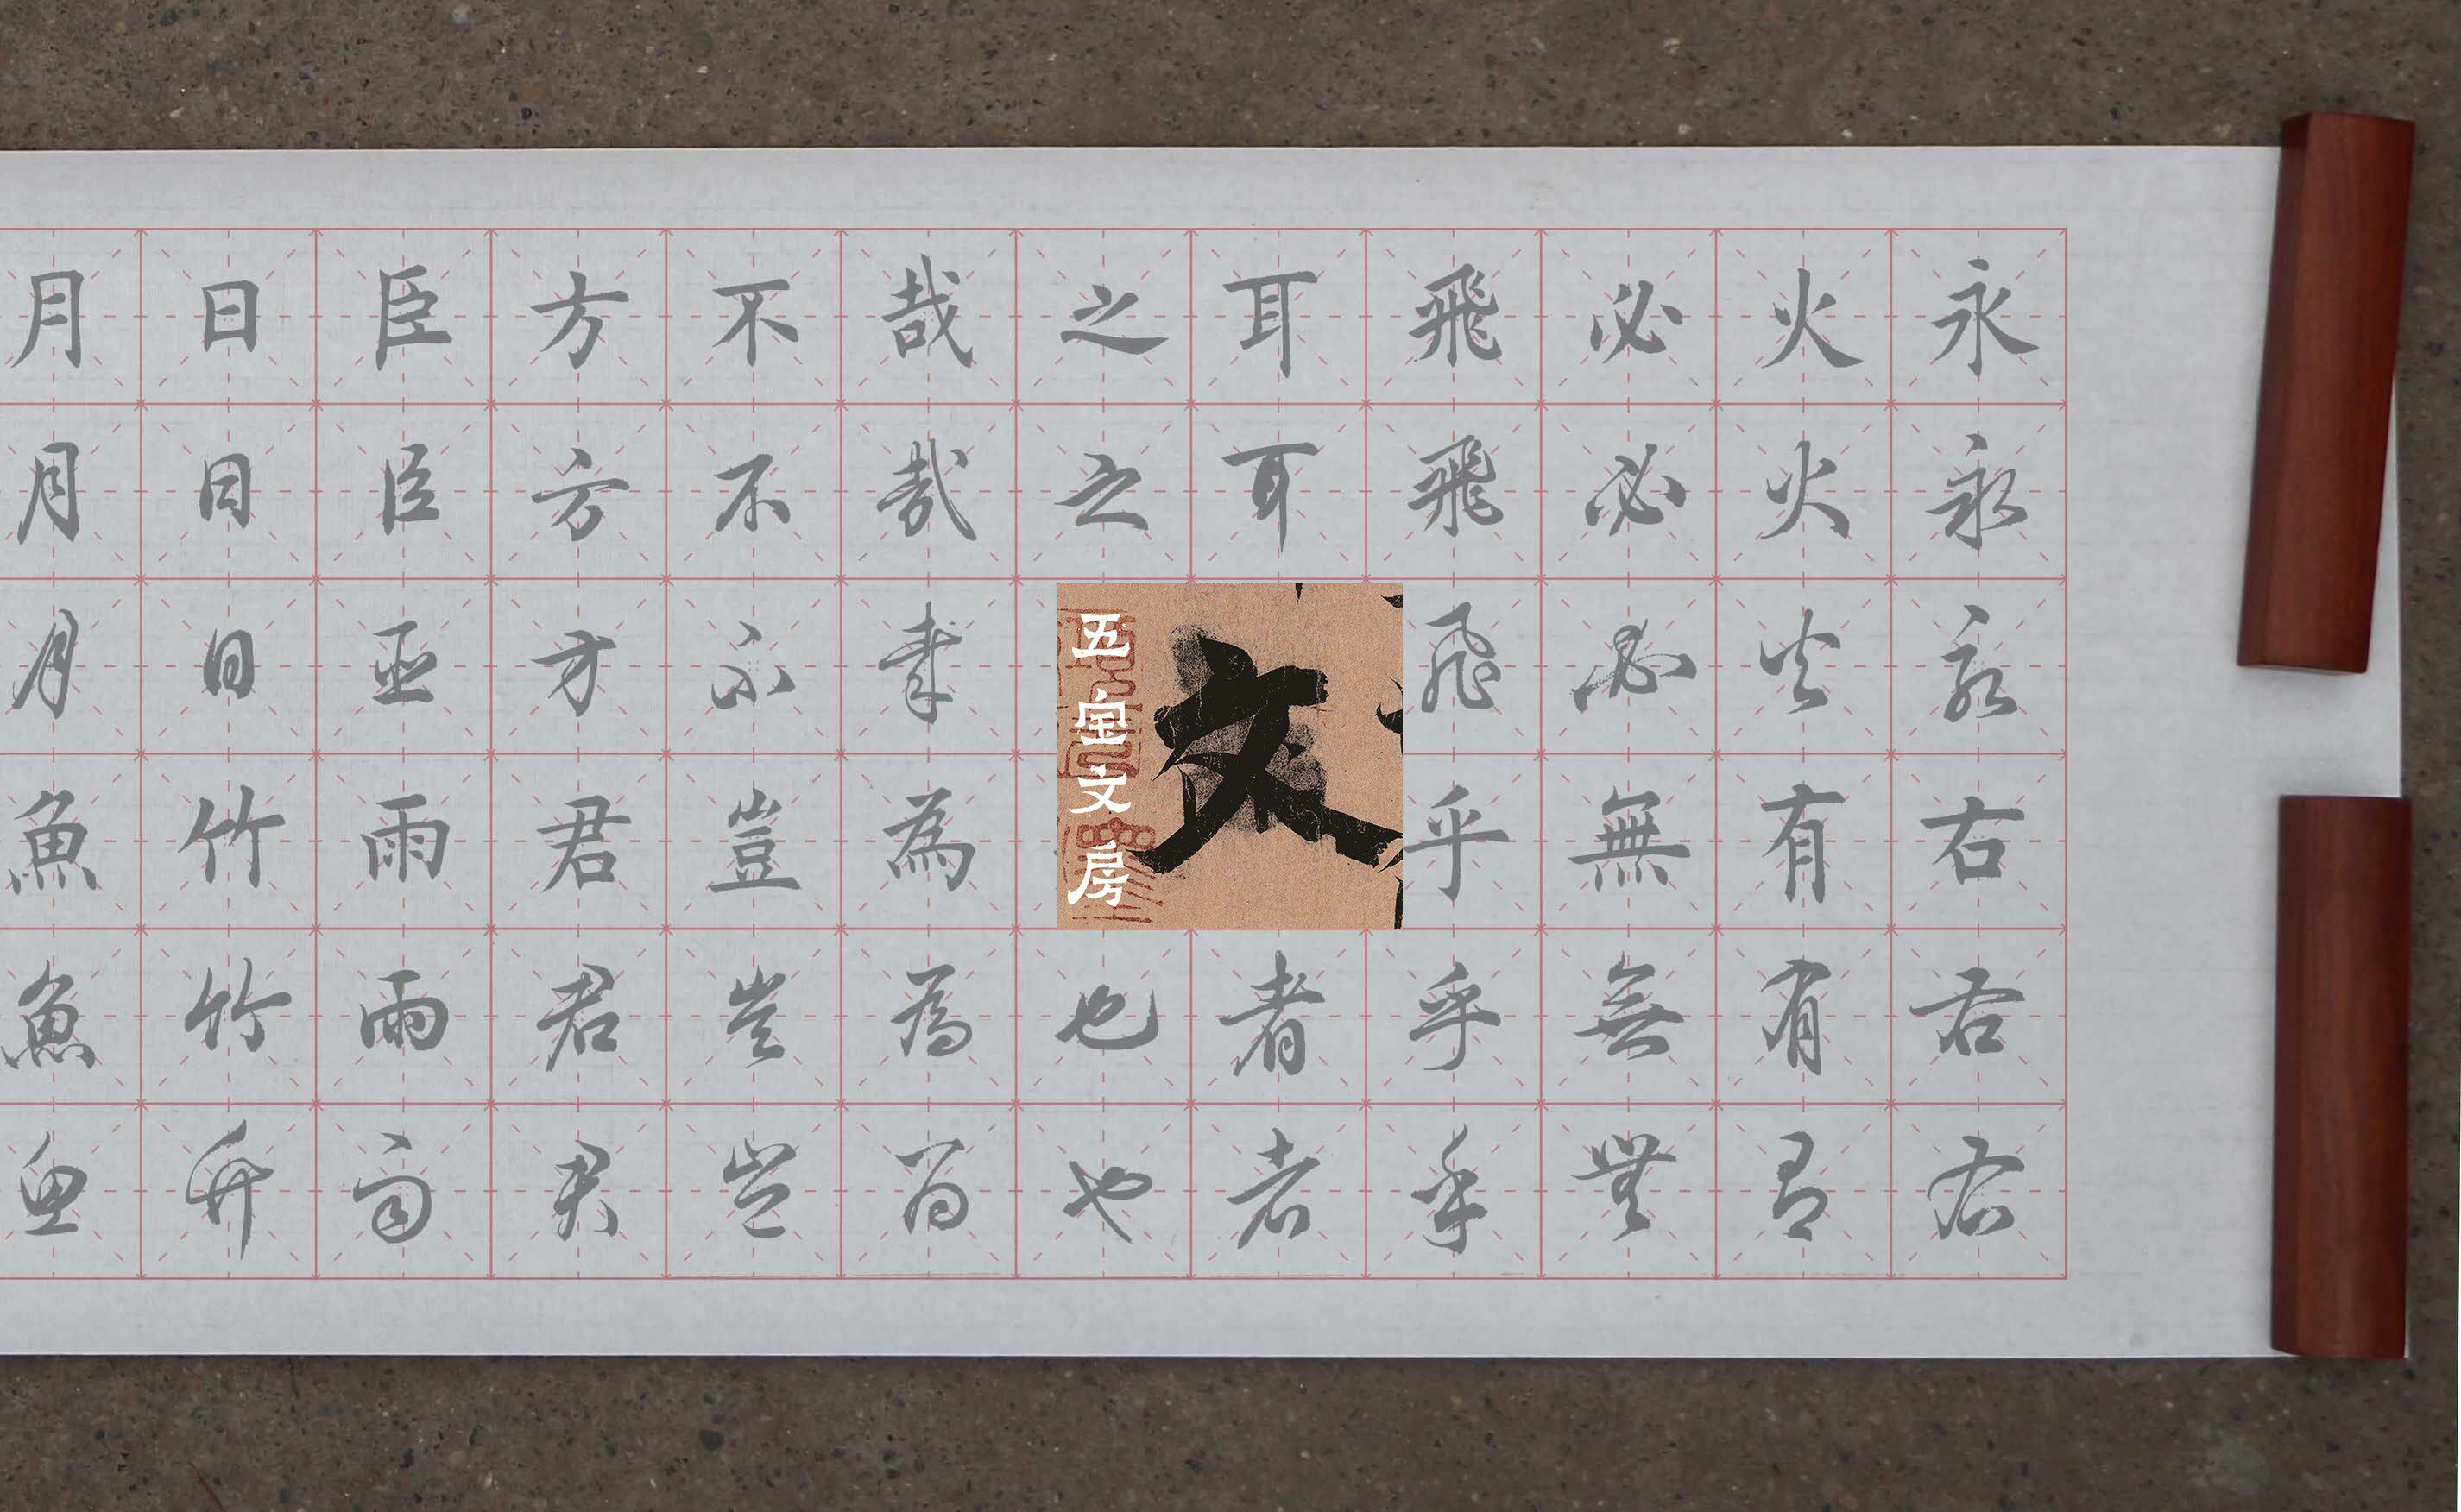 永永永右右右
火火火有有有
必必必無無無
飛飛飛乎乎乎
耳耳者者
之之也也
哉哉哉為為為
不不不豈豈豈
方方方君君君
臣臣臣雨雨雨
日日日竹竹竹
月月月魚魚魚
文
五文房